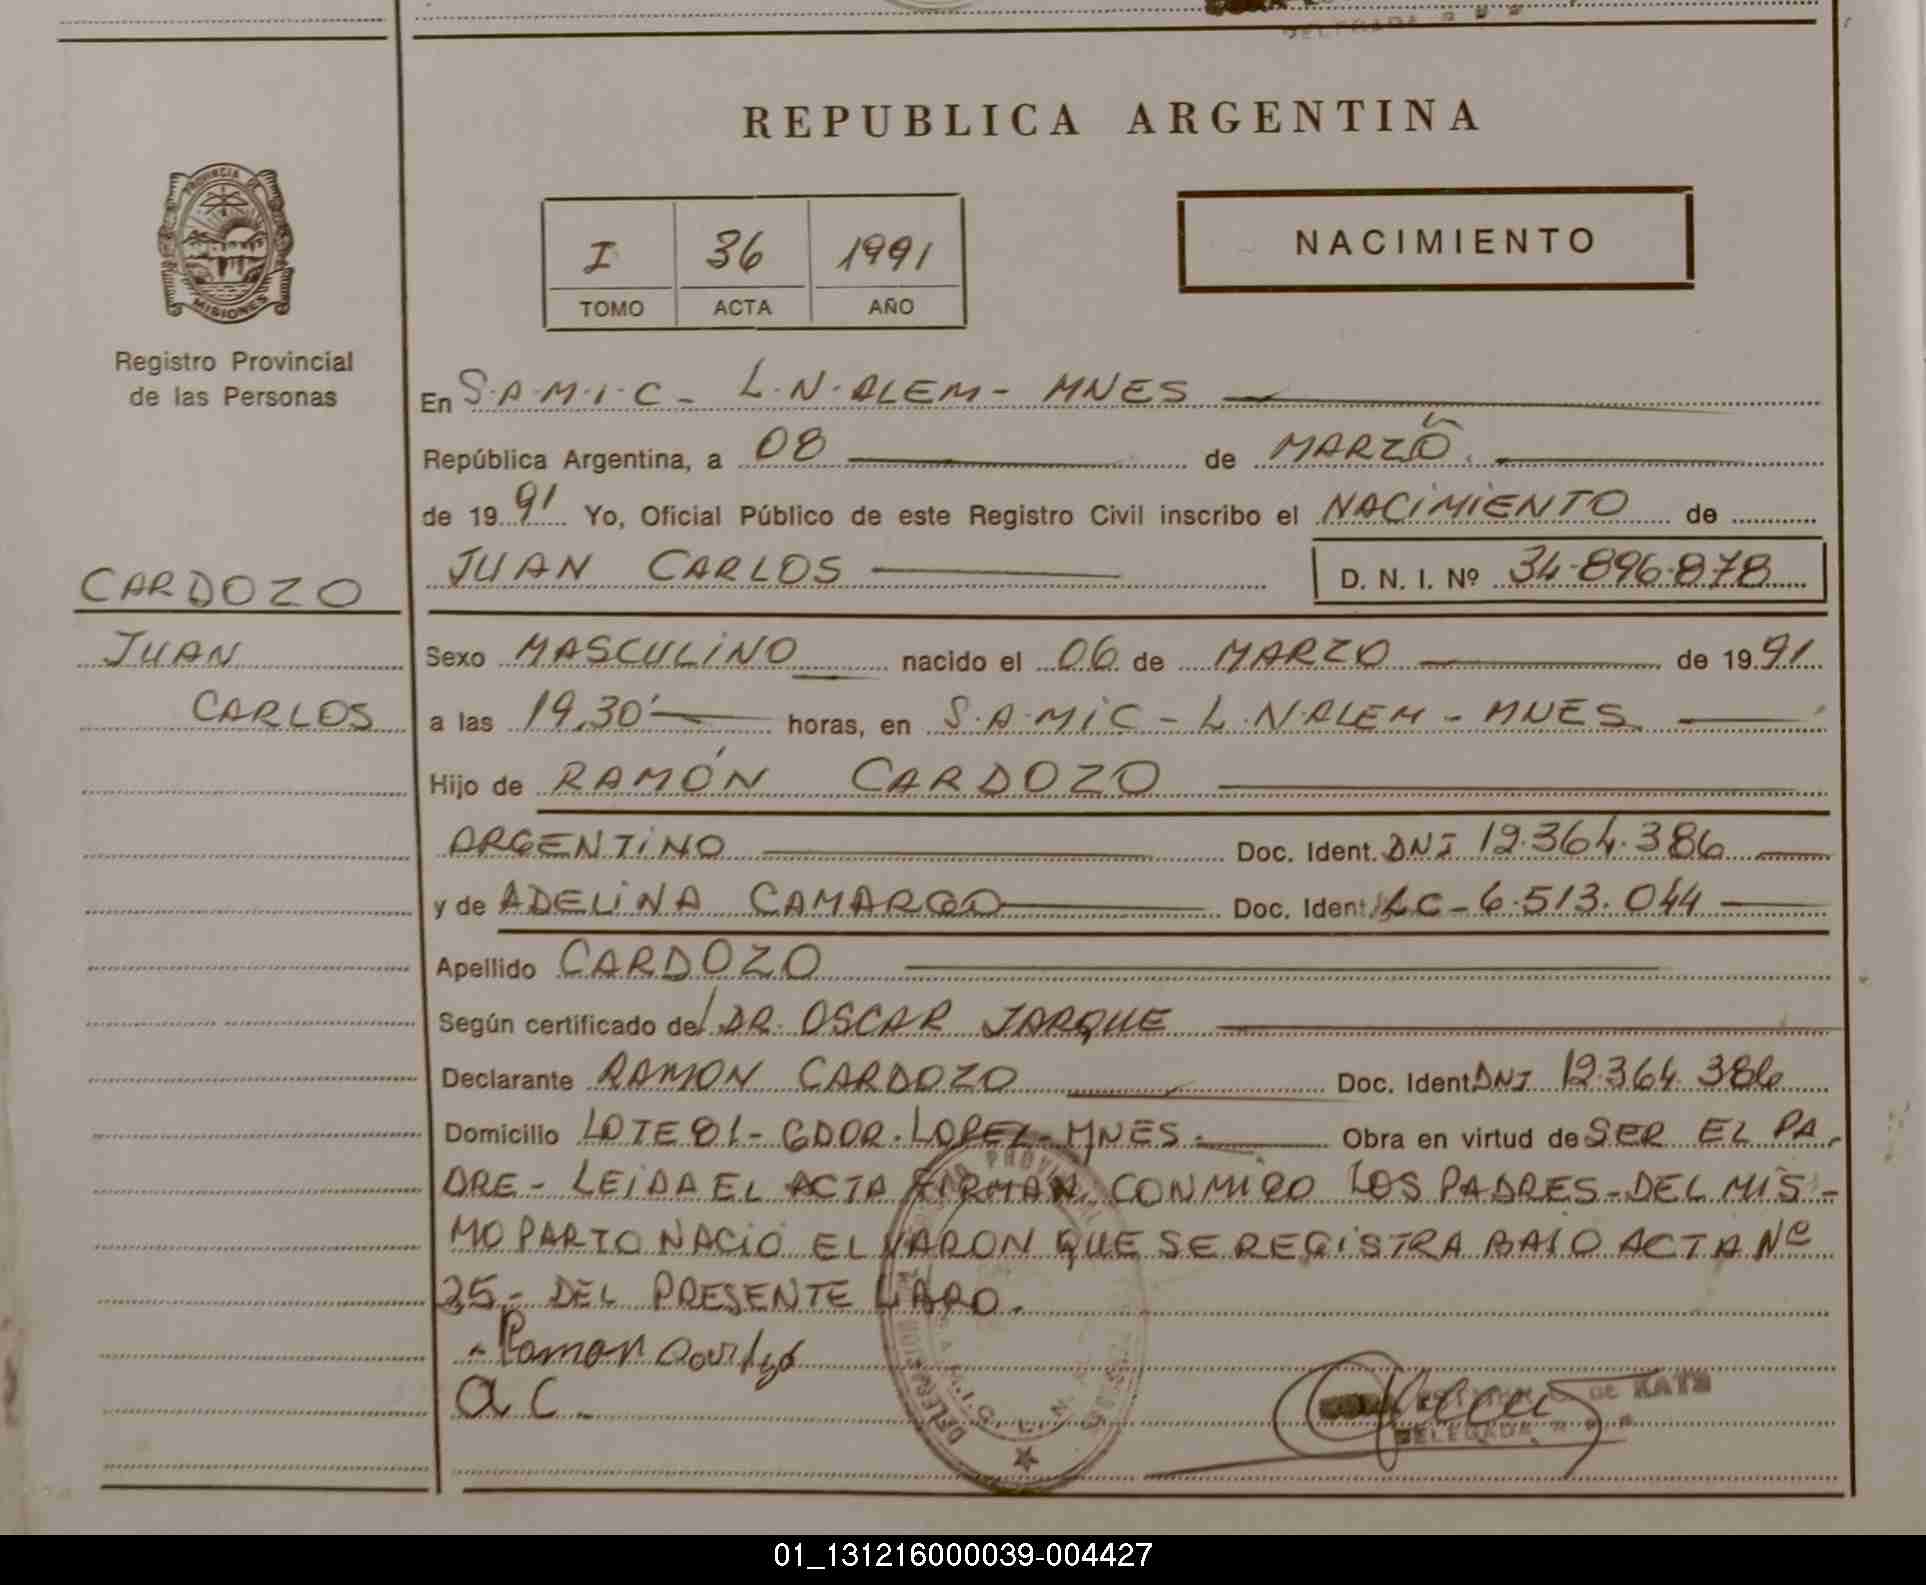 REPUBLICA ARGENTINA
PROVINCIA DE
MISIONES
Registro Provincial
de las Personas
I 36 1991
TOMO ACTA AÑO
NACIMIENTO
En S.A.M.I.C - L.N.ALEM - MNES
República Argentina, a 08 de MARZO
de 1991 Yo, Oficial Público de este Registro Civil inscribo el NACIMIENTO de
JUAN CARLOS D. N. I. Nº 34.896.878
CARDOZO
JUAN
CARLOS
Sexo MASCULINO nacido el 06 de MARZO de 1991
a las 19,30 horas, en S.A.MIC - L.N.ALEM - MNES
Hijo de RAMÓN CARDOZO
ARGENTINO Doc. Ident. DNI 12.364.386
y de ADELINA CAMARGO Doc. Ident. LC - 6.513.044
Apellido CARDOZO
Según certificado del DR. OSCAR JARQUE
Declarante RAMON CARDOZO Doc. Ident DNI 12.364.386
Domicilio LOTE 81 - GDOR. LOPEZ - MNES - Obra en virtud de SER EL PA-
DRE - LEIDA EL ACTA FIRMAN CONMIGO LOS PADRES - DEL MIS-
MO PARTO NACIÓ EL VARON QUE SE REGISTRA BAJO ACTA Nº
35 - DEL PRESENTE LIBRO.
Ramon Cardozo
a C.
DE KATZ
DELEGADA
01_131216000039-004427